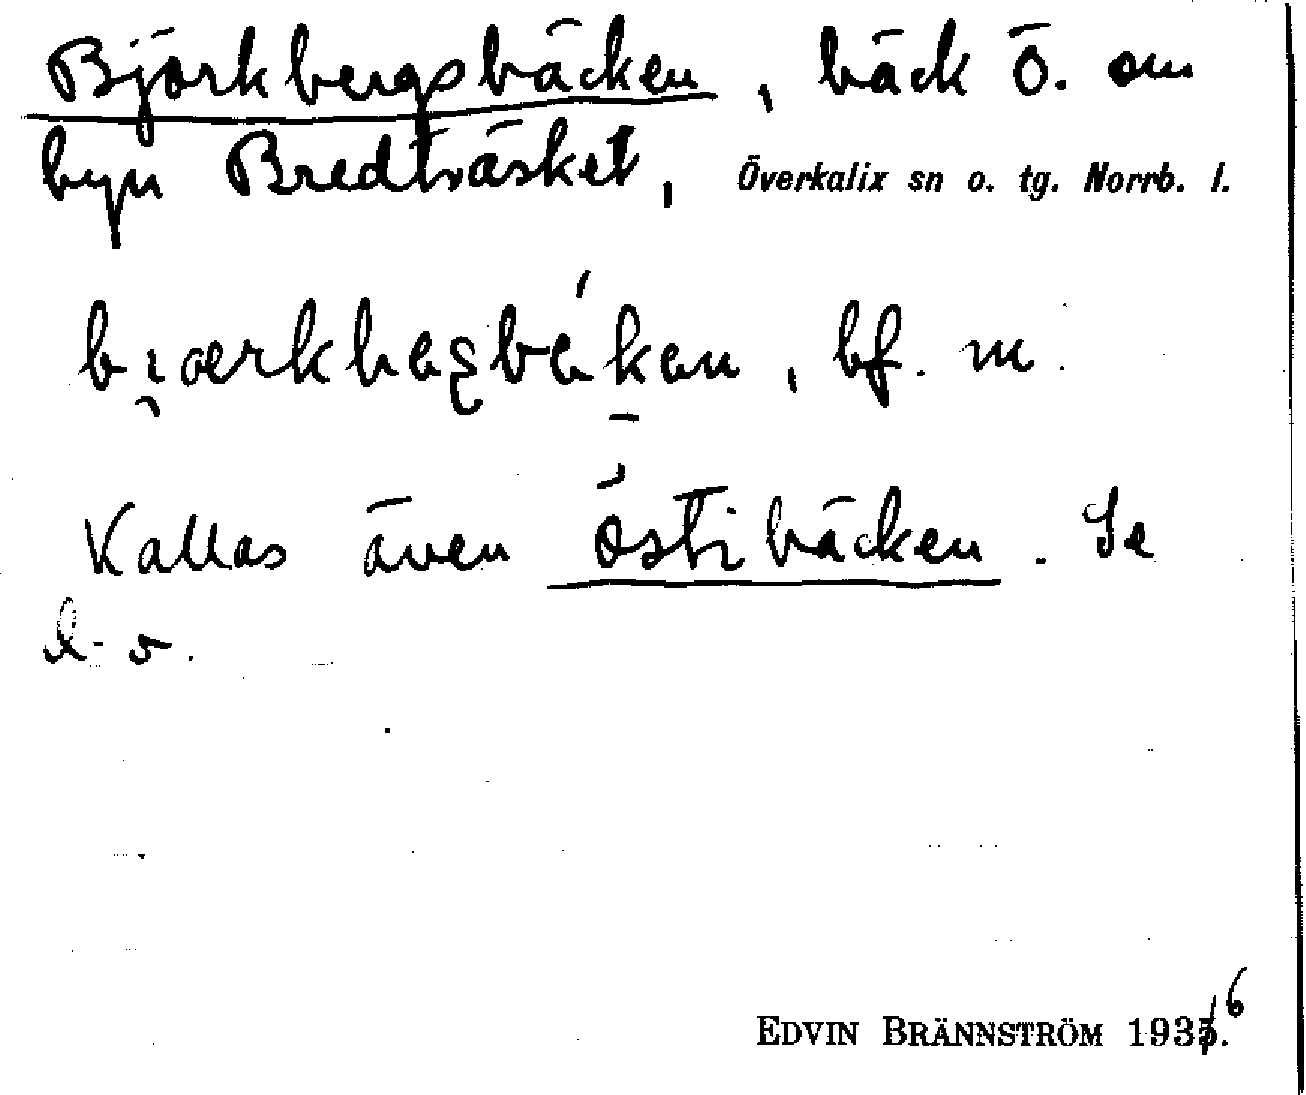 Björkbergsbäcken, bäck ö. om
byn Bredträsket, Överkalix sn o. tg. Norrb. l.
bi̯ærkbæʂbækæn, bf. m.
Kallas även östibäcken. Se
d. o.
EDVIN BRÄNNSTRÖM 1936.